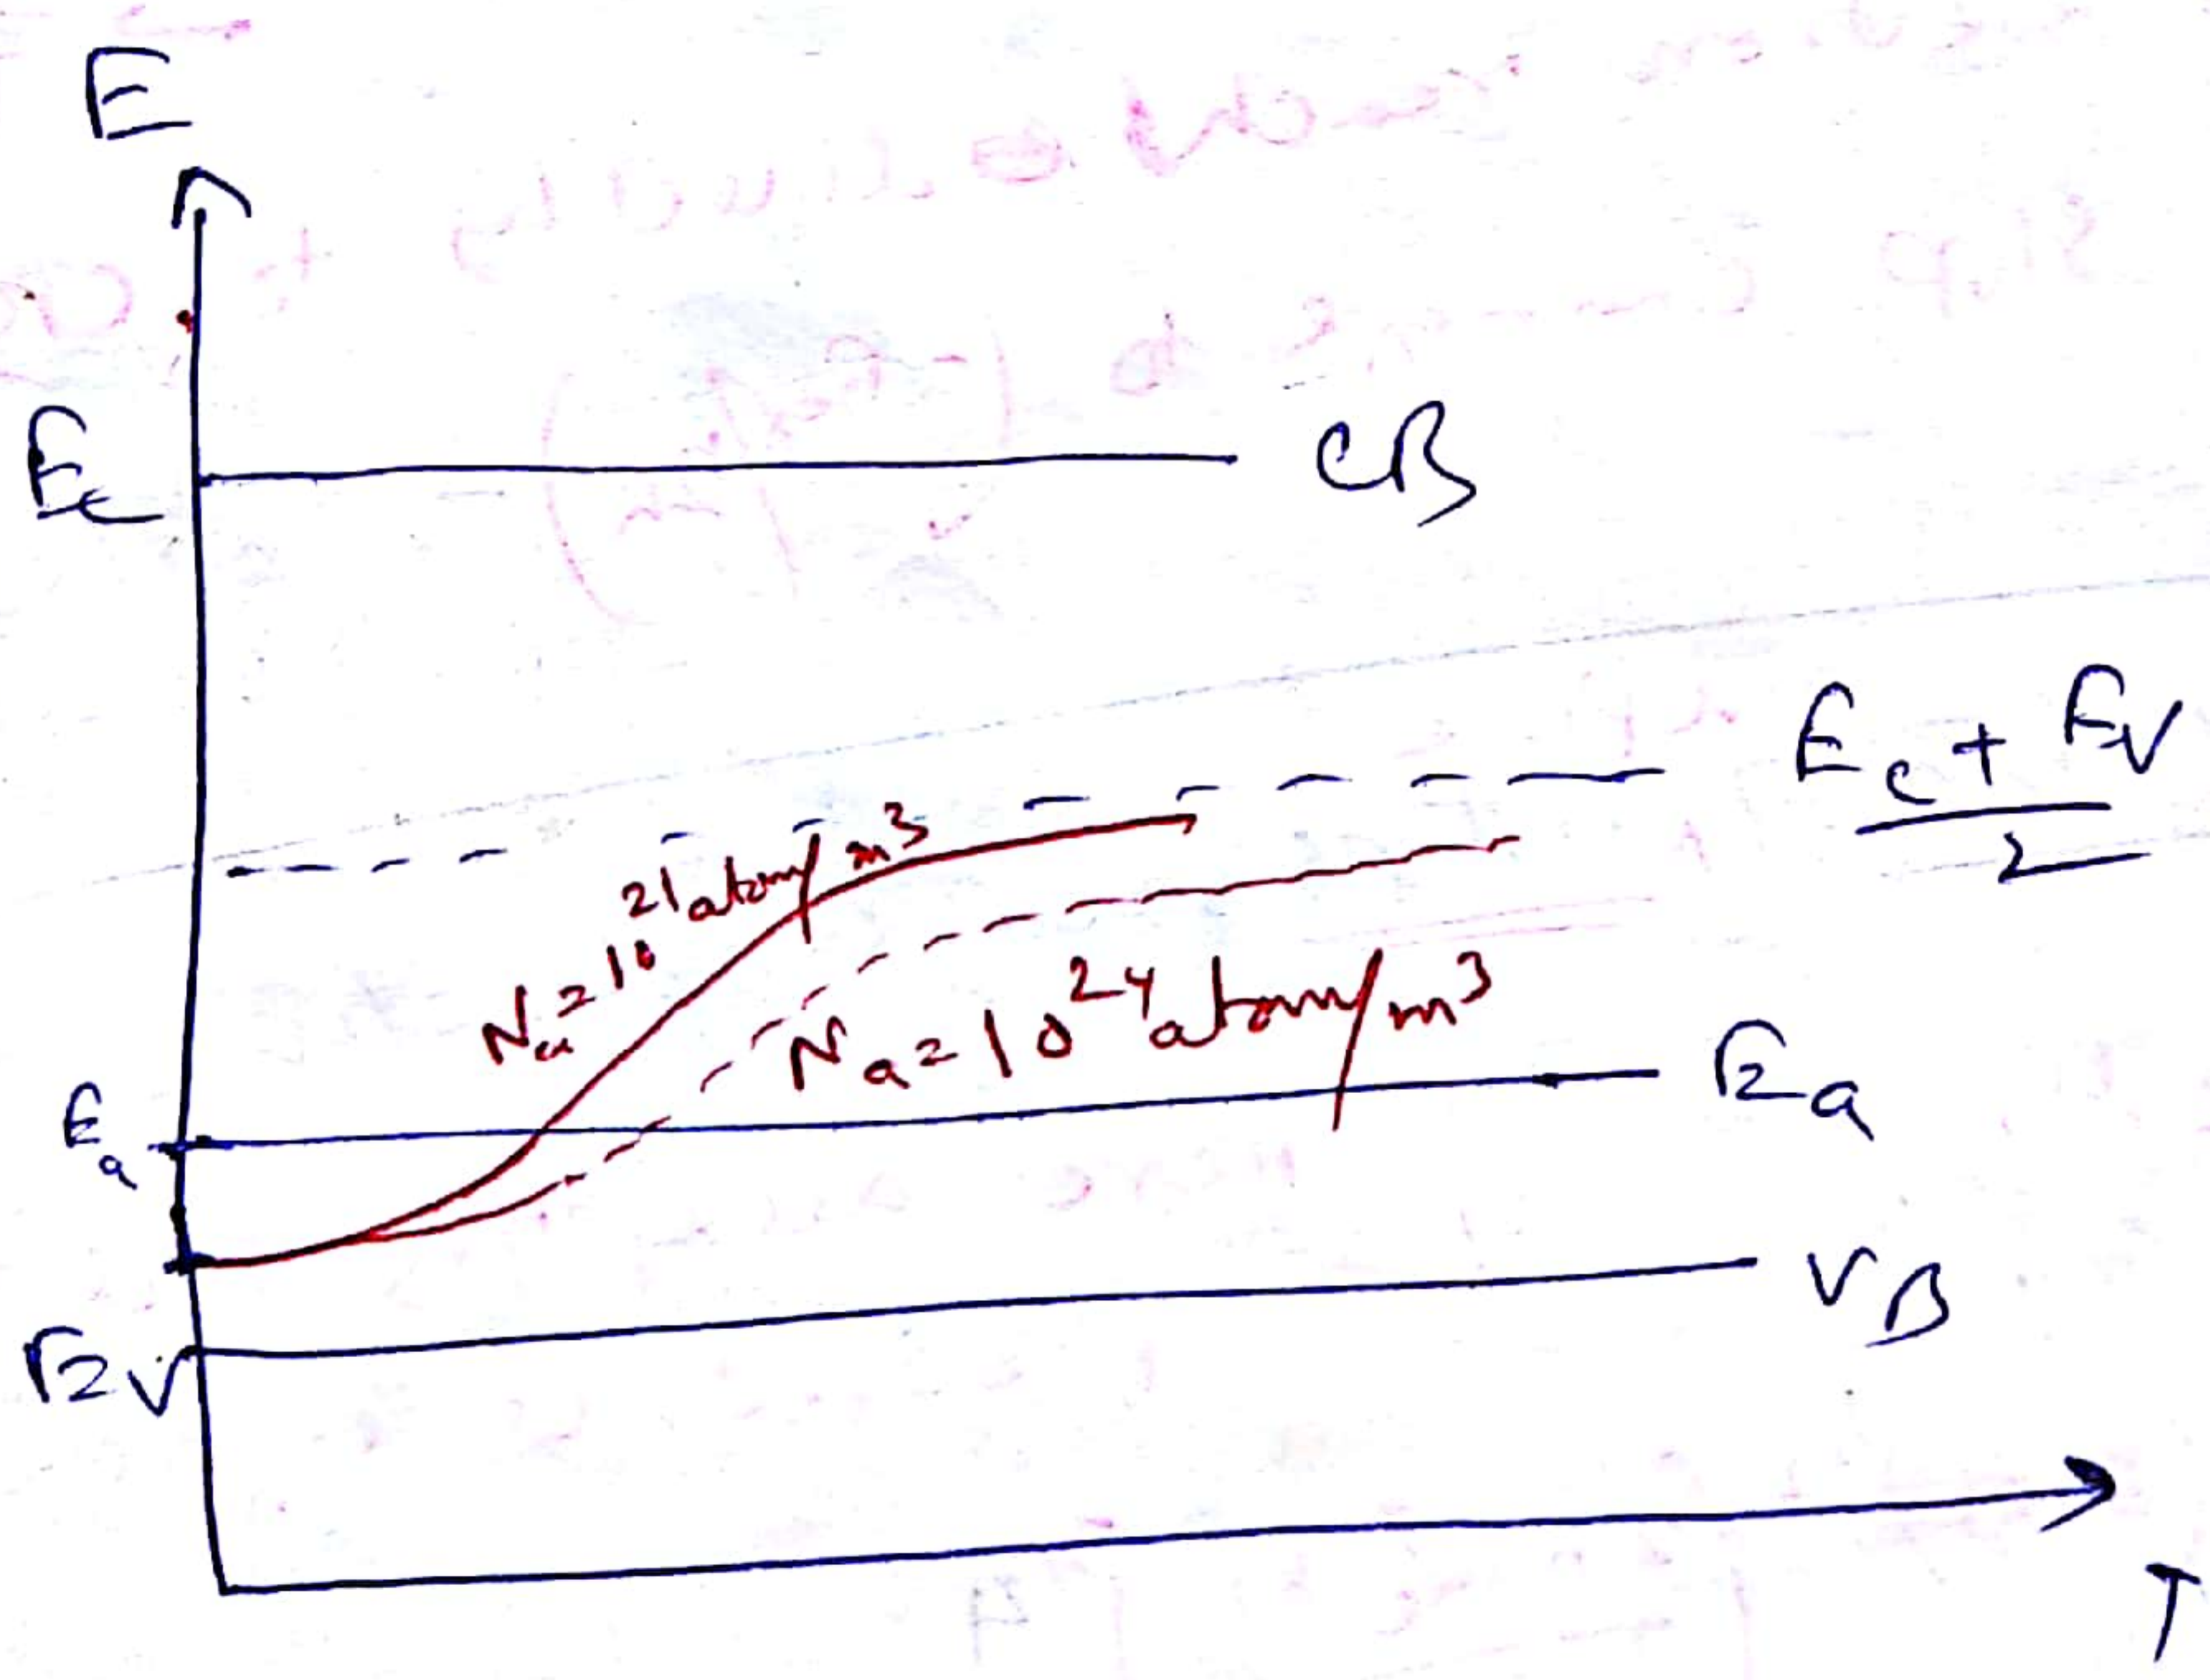 E
Ec
CB
Ec + Ev
2
Na = 10^21 atom/m^3
Na = 10^24 atom/m^3
Ea
Ea
VB
Ev
T